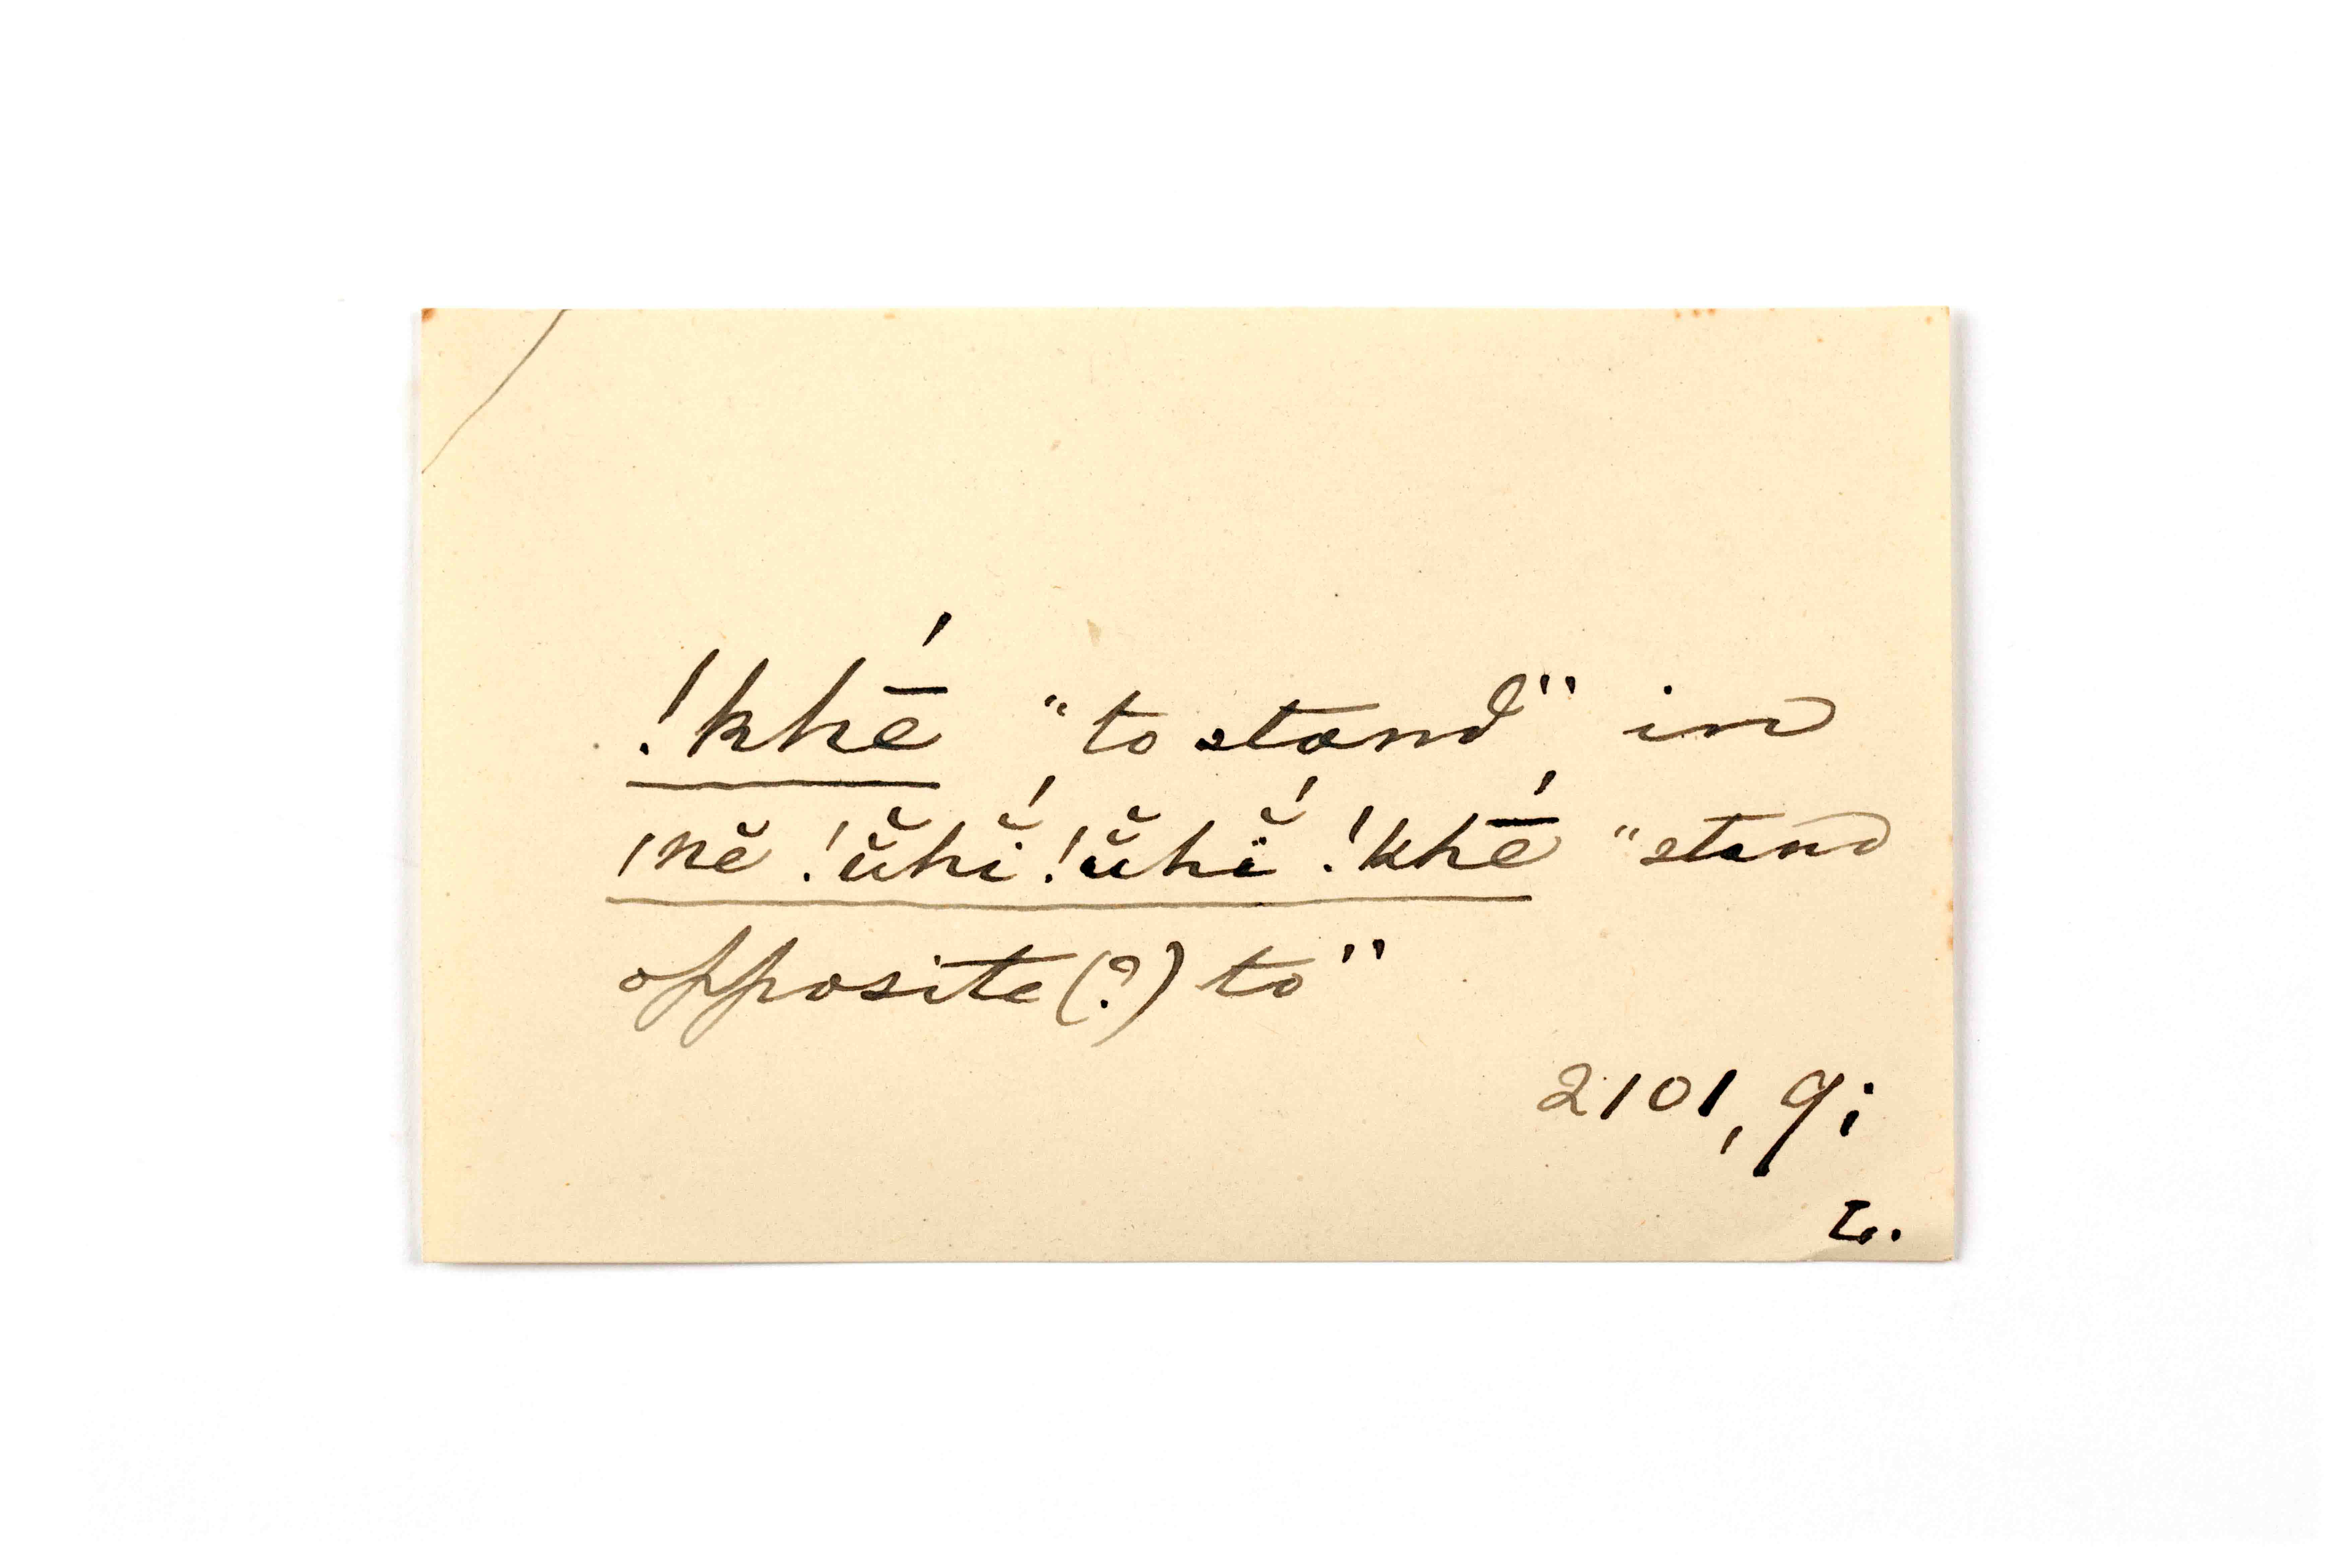 !khḗ "to stand" in
ǀnĕ !ŭhĭ́ !ŭhĭ́ !khḗ "stand
opposite (?) to"
2101, 9;
L.